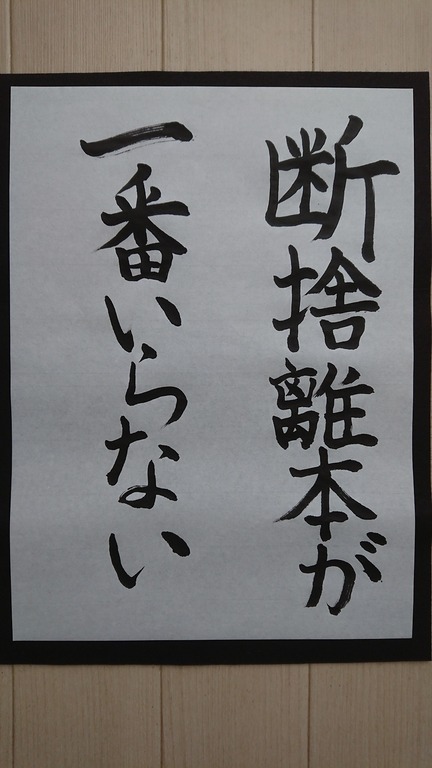 断捨離本が
一番いらない